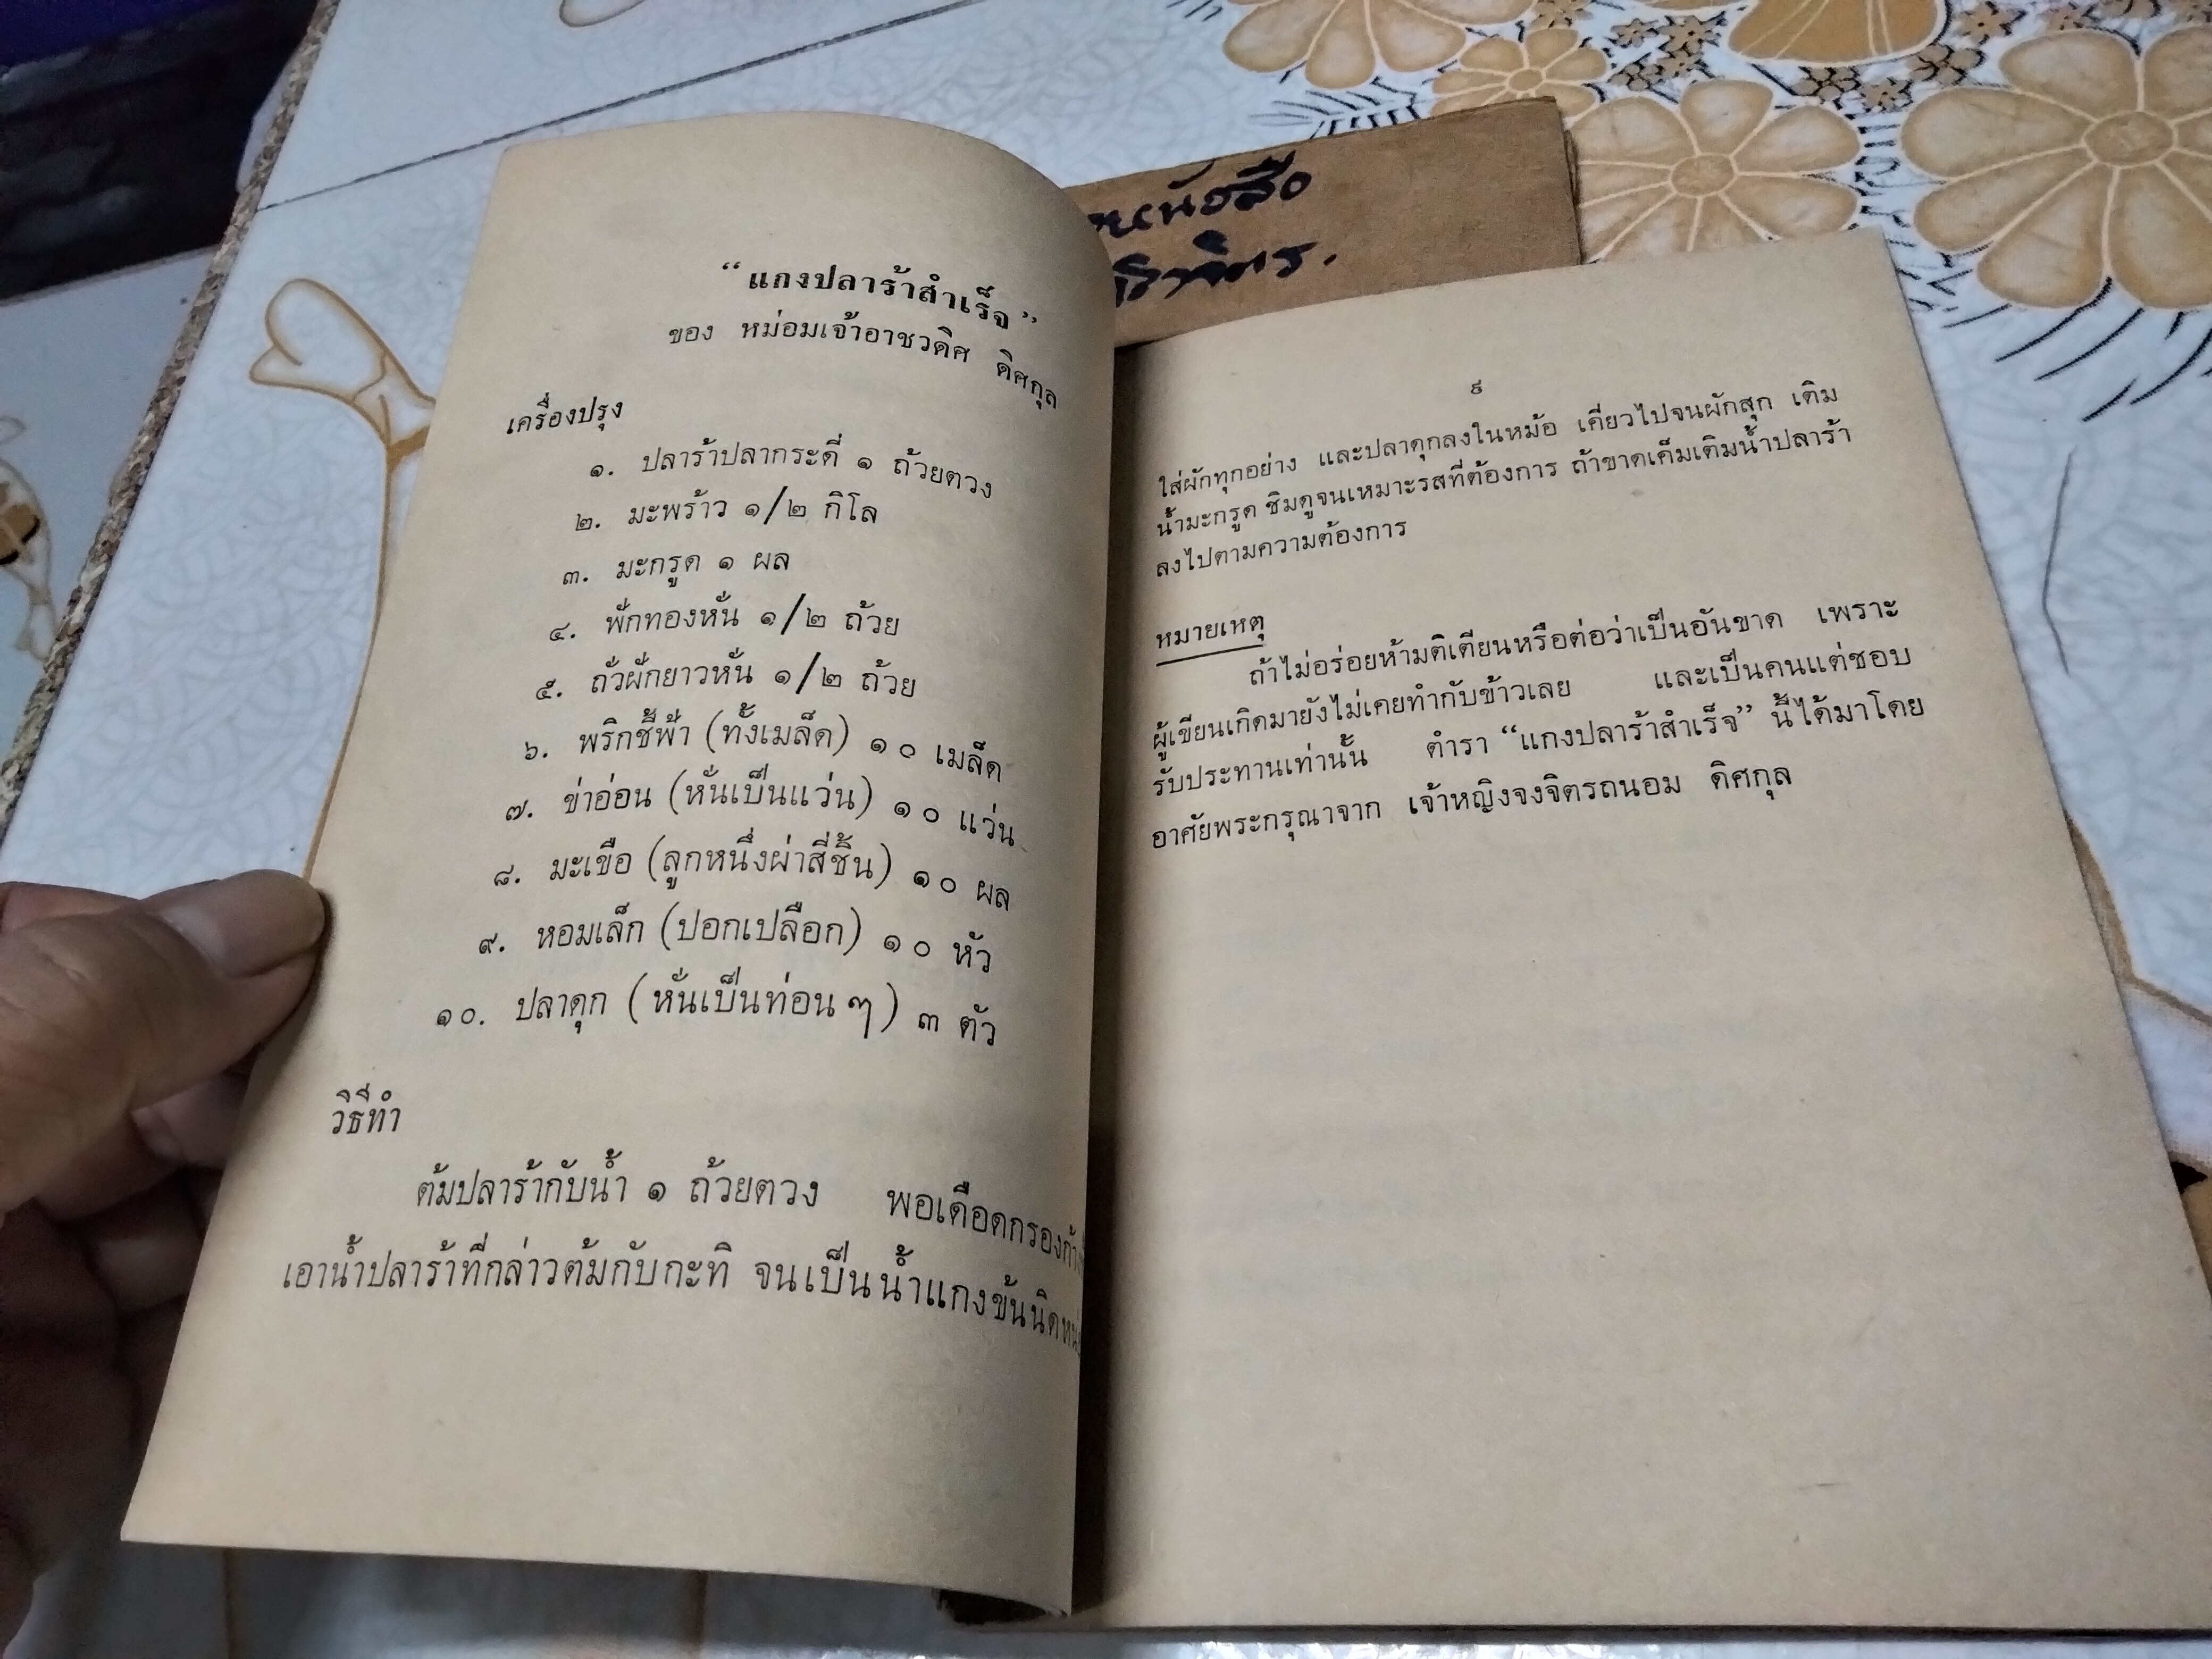 “แกงปลาร้าสำเร็จ”
ของ หม่อมเจ้าอาชวดิศ ดิศกุล
เครื่องปรุง
๑. ปลาร้าปลากระดี่ ๑ ถ้วยตวง
๒. มะพร้าว ๑/๒ กิโล
๓. มะกรูด ๑ ผล
๔. ฟักทองหั่น ๑/๒ ถ้วย
๕. ถั่วฝักยาวหั่น ๑/๒ ถ้วย
๖. พริกชี้ฟ้า (ทั้งเมล็ด) ๑๐ เมล็ด
๗. ข่าอ่อน (หั่นเป็นแว่น) ๑๐ แว่น
๘. มะเขือ (ลูกหนึ่งผ่าสี่ชิ้น) ๑๐ ผล
๙. หอมเล็ก (ปอกเปลือก) ๑๐ หัว
๑๐. ปลาดุก (หั่นเป็นท่อนๆ) ๓ ตัว
วิธีทำ
ต้มปลาร้ากับน้ำ ๑ ถ้วยตวง พอเดือดกรอง
เอาน้ำปลาร้าที่กล่าวต้มกับกะทิ จนเป็นน้ำแกงข้น
หนังสือ
๙
ใส่ผักทุกอย่าง และปลาดุกลงในหม้อ เคี่ยวไปจนผักสุก เติม
น้ำมะกรูด ชิมดูจนเหมาะรสที่ต้องการ ถ้าขาดเค็มเติมน้ำปลาร้า
ลงไปตามความต้องการ
หมายเหตุ
ถ้าไม่อร่อยห้ามติเตียนหรือต่อว่าเป็นอันขาด เพราะ
ผู้เขียนเกิดมายังไม่เคยทำกับข้าวเลย และเป็นคนแต่ชอบ
รับประทานเท่านั้น ตำรา “แกงปลาร้าสำเร็จ” นี้ได้มาโดย
อาศัยพระกรุณาจาก เจ้าหญิงจงจิตรถนอม ดิศกุล